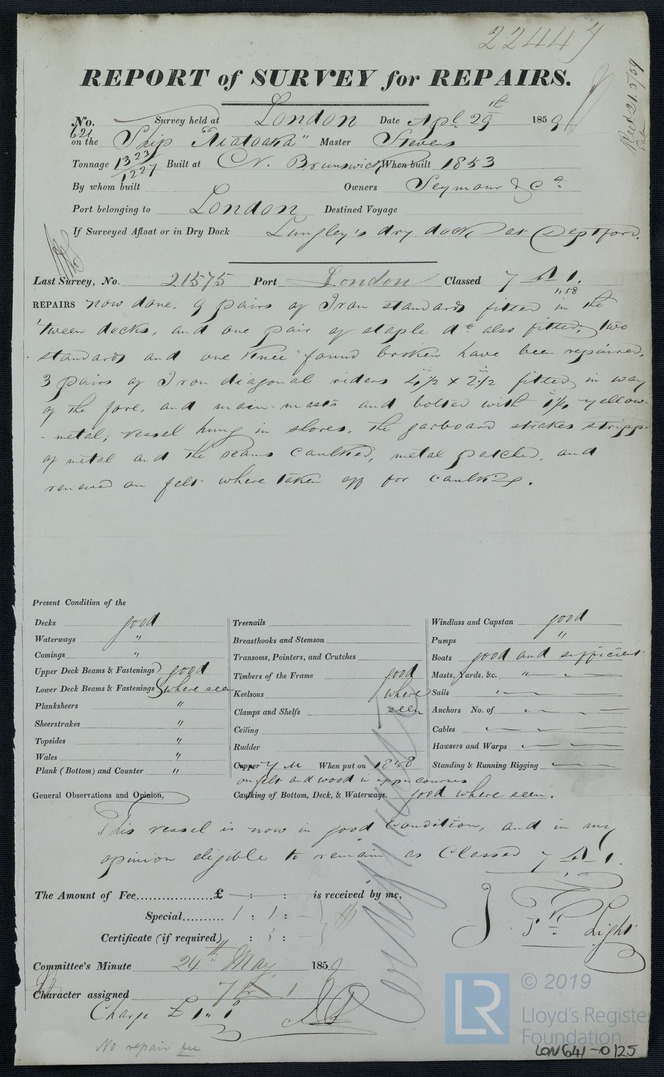 22447
REPORT of SURVEY for REPAIRS.
No. 621 Survey held at London Date Apl. 29th 1859
on the Ship "Matoaka" Master Stevens
Tonnage 1323 / 1227 Built at N. Brunswick When built 1853
By whom built Owners Seymour & Co
Port belonging to London Destined Voyage
If Surveyed Afloat or in Dry Dock Langley's dry dock at Deptford.
Last Survey, No. 21575 Port London Classed 7 A 1.
REPAIRS now done, 9 pairs of Iron standards fitted in the
'tween decks, and one pair of staple do also fitted; two
standards and one knee found broken have been repaired.
3 pairs of Iron diagonal riders 4½ x 2½ fitted in way
of the fore, and main masts and bolted with 1⅛ yellow-
-metal; vessel hung in shores, the garboard strakes stripp
of metal and the seams caulked, metal patched, and
renewed on felt where taken off for caulking.
Present Condition of the
Decks good
Waterways "
Comings "
Upper Deck Beams & Fastenings good
Lower Deck Beams & Fastenings where seen
Planksheers "
Sheerstrakes "
Topsides "
Wales "
Plank (Bottom) and Counter "
Treenails
Breasthooks and Stemson
Transoms, Pointers, and Crutches
Timbers of the Frame good
Keelsons where
Clamps and Shelfs seen
Ceiling
Rudder
Copper Y M When put on 1858
on felt and wood in upper courses
Caulking of Bottom, Deck, & Waterways. good where seen.
Windlass and Capstan good
Pumps "
Boats good and sufficient
Masts, Yards, &c. "
Sails "
Anchors No. of
Cables
Hawsers and Warps
Standing & Running Rigging
General Observations and Opinion,
This vessel is now in good condition, and in my
opinion eligible to remain as Classed 7 A 1.
The Amount of Fee £ : : is received by me,
Special 1 : 1 :
Certificate (if required) : :
Light
Committee's Minute 24th May 1859
Character assigned 7 A 1
Charge £ 1 " 1
No repair fee
LR
© 2019
Lloyd's Register
Foundation
LON641-0125